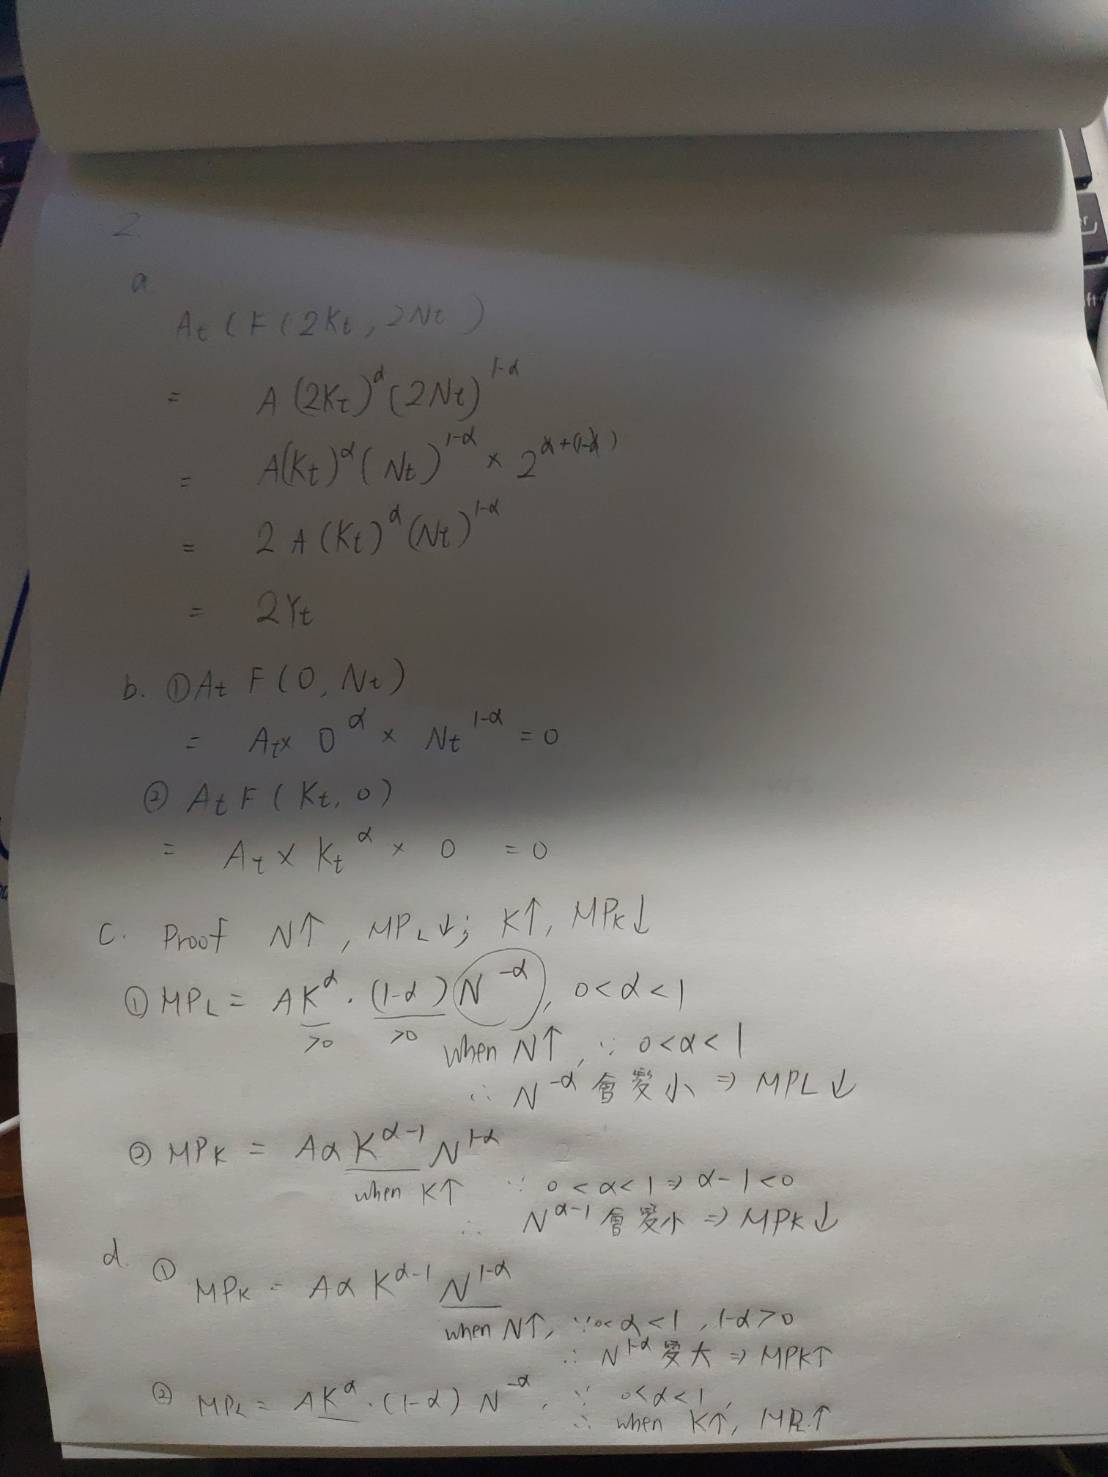 2
a
At ( F ( 2Kt , 2Nt )
= A (2Kt)^α (2Nt)^1-α
= A(Kt)^α ( Nt )^1-α × 2^α+(1-α)
= 2 A (Kt)^α (Nt)^1-α
= 2Yt
b. ① At F ( 0, Nt )
= At × 0^α × Nt^1-α = 0
② At F ( Kt, 0 )
= At × Kt^α × 0 = 0
c. Proof N↑ , MPL↓; K↑, MPK↓
① MPL = AK^α · (1-α) N^-α , 0<α<1
>0 >0
when N↑, ∵ 0<α<1
∴ N^-α 會變小 ⇒ MPL↓
② MPK = Aα K^α-1 N^1-α
when K↑ ∵ 0<α<1 ⇒ α-1<0
∴ N^α-1 會變小 ⇒ MPK↓
d. ① MPK = Aα K^α-1 N^1-α
when N↑, ∵ 0<α<1 , 1-α>0
∴ N^1-α 變大 ⇒ MPK↑
② MPL = AK^α · (1-α) N^-α , ∵ 0<α<1,
∴ when K↑, MPL↑